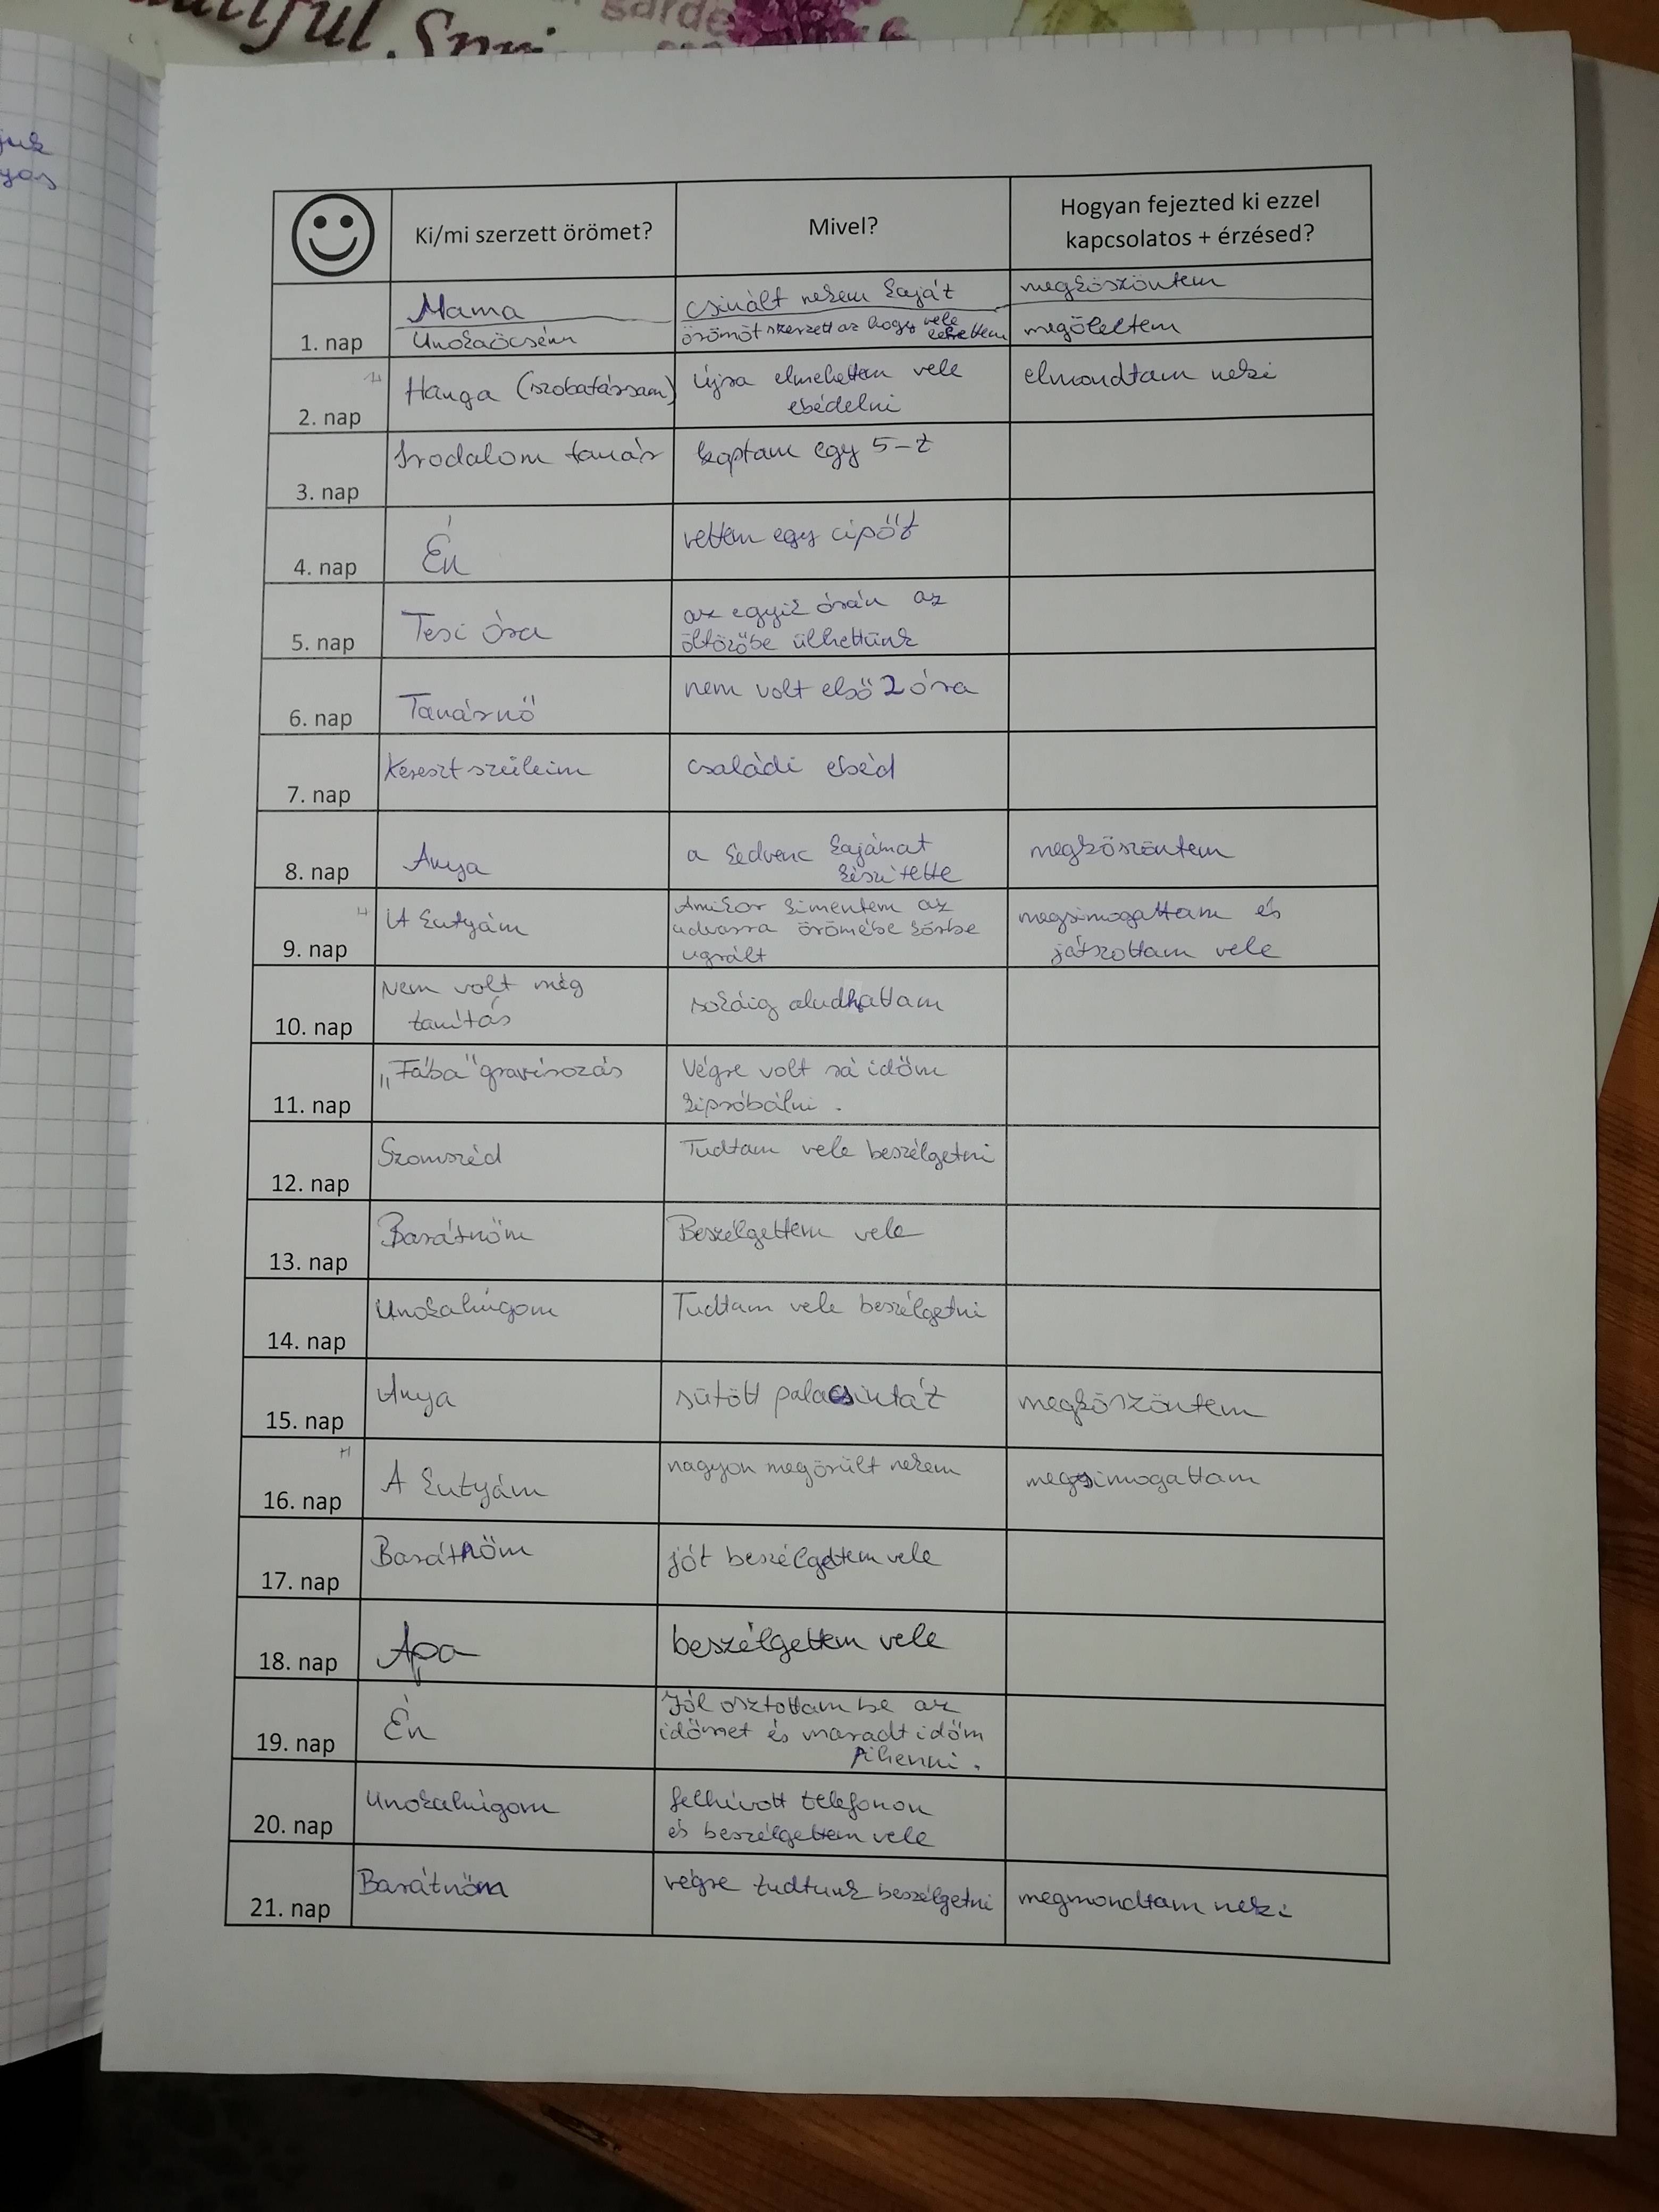 juk
yos
garde
Ki/mi szerzett örömet?
Mivel?
Hogyan fejezted ki ezzel
kapcsolatos + érzésed?
1. nap
Mama
csinált nekem kaját
megköszöntem
Unokaöcsém
örömöt szerzett az hogy vele
lehettem
megöleltem
2. nap
H
Hanga (szobatársam)
újra elmehettem vele
ebédelni
elmondtam neki
3. nap
Irodalom tanár
kaptam egy 5-t
4. nap
Én
vettem egy cipőt
5. nap
Tesi óra
az egyik órán az
öltözőbe ülhettünk
6. nap
Tanárnő
nem volt első 2 óra
7. nap
Kereszt szüleim
családi ebéd
8. nap
Anya
a kedvenc kajámat
készítette
megköszöntem
9. nap
H
A kutyám
Amikor kimentem az
udvarra örömébe körbe
ugrált
megsimogattam és
játszottam vele
10. nap
Nem volt még
tanítás
sokáig aludhattam
11. nap
„Fába" gravírozás
Végre volt rá időm
kipróbálni.
12. nap
Szomszéd
Tudtam vele beszélgetni
13. nap
Barátnőm
Beszélgettem vele
14. nap
Unokahúgom
Tudtam vele beszélgetni
15. nap
Anya
sütött palacsintát
megköszöntem
16. nap
H
A kutyám
nagyon megörült nekem
megsimogattam
17. nap
Barátnőm
jót beszélgettem vele
18. nap
Apa
beszélgettem vele
19. nap
Én
Jól osztottam be az
időmet és maradt időm
pihenni.
20. nap
Unokahúgom
felhívott telefonon
és beszélgettem vele
21. nap
Barátnőm
végre tudtunk beszélgetni
megmondtam neki